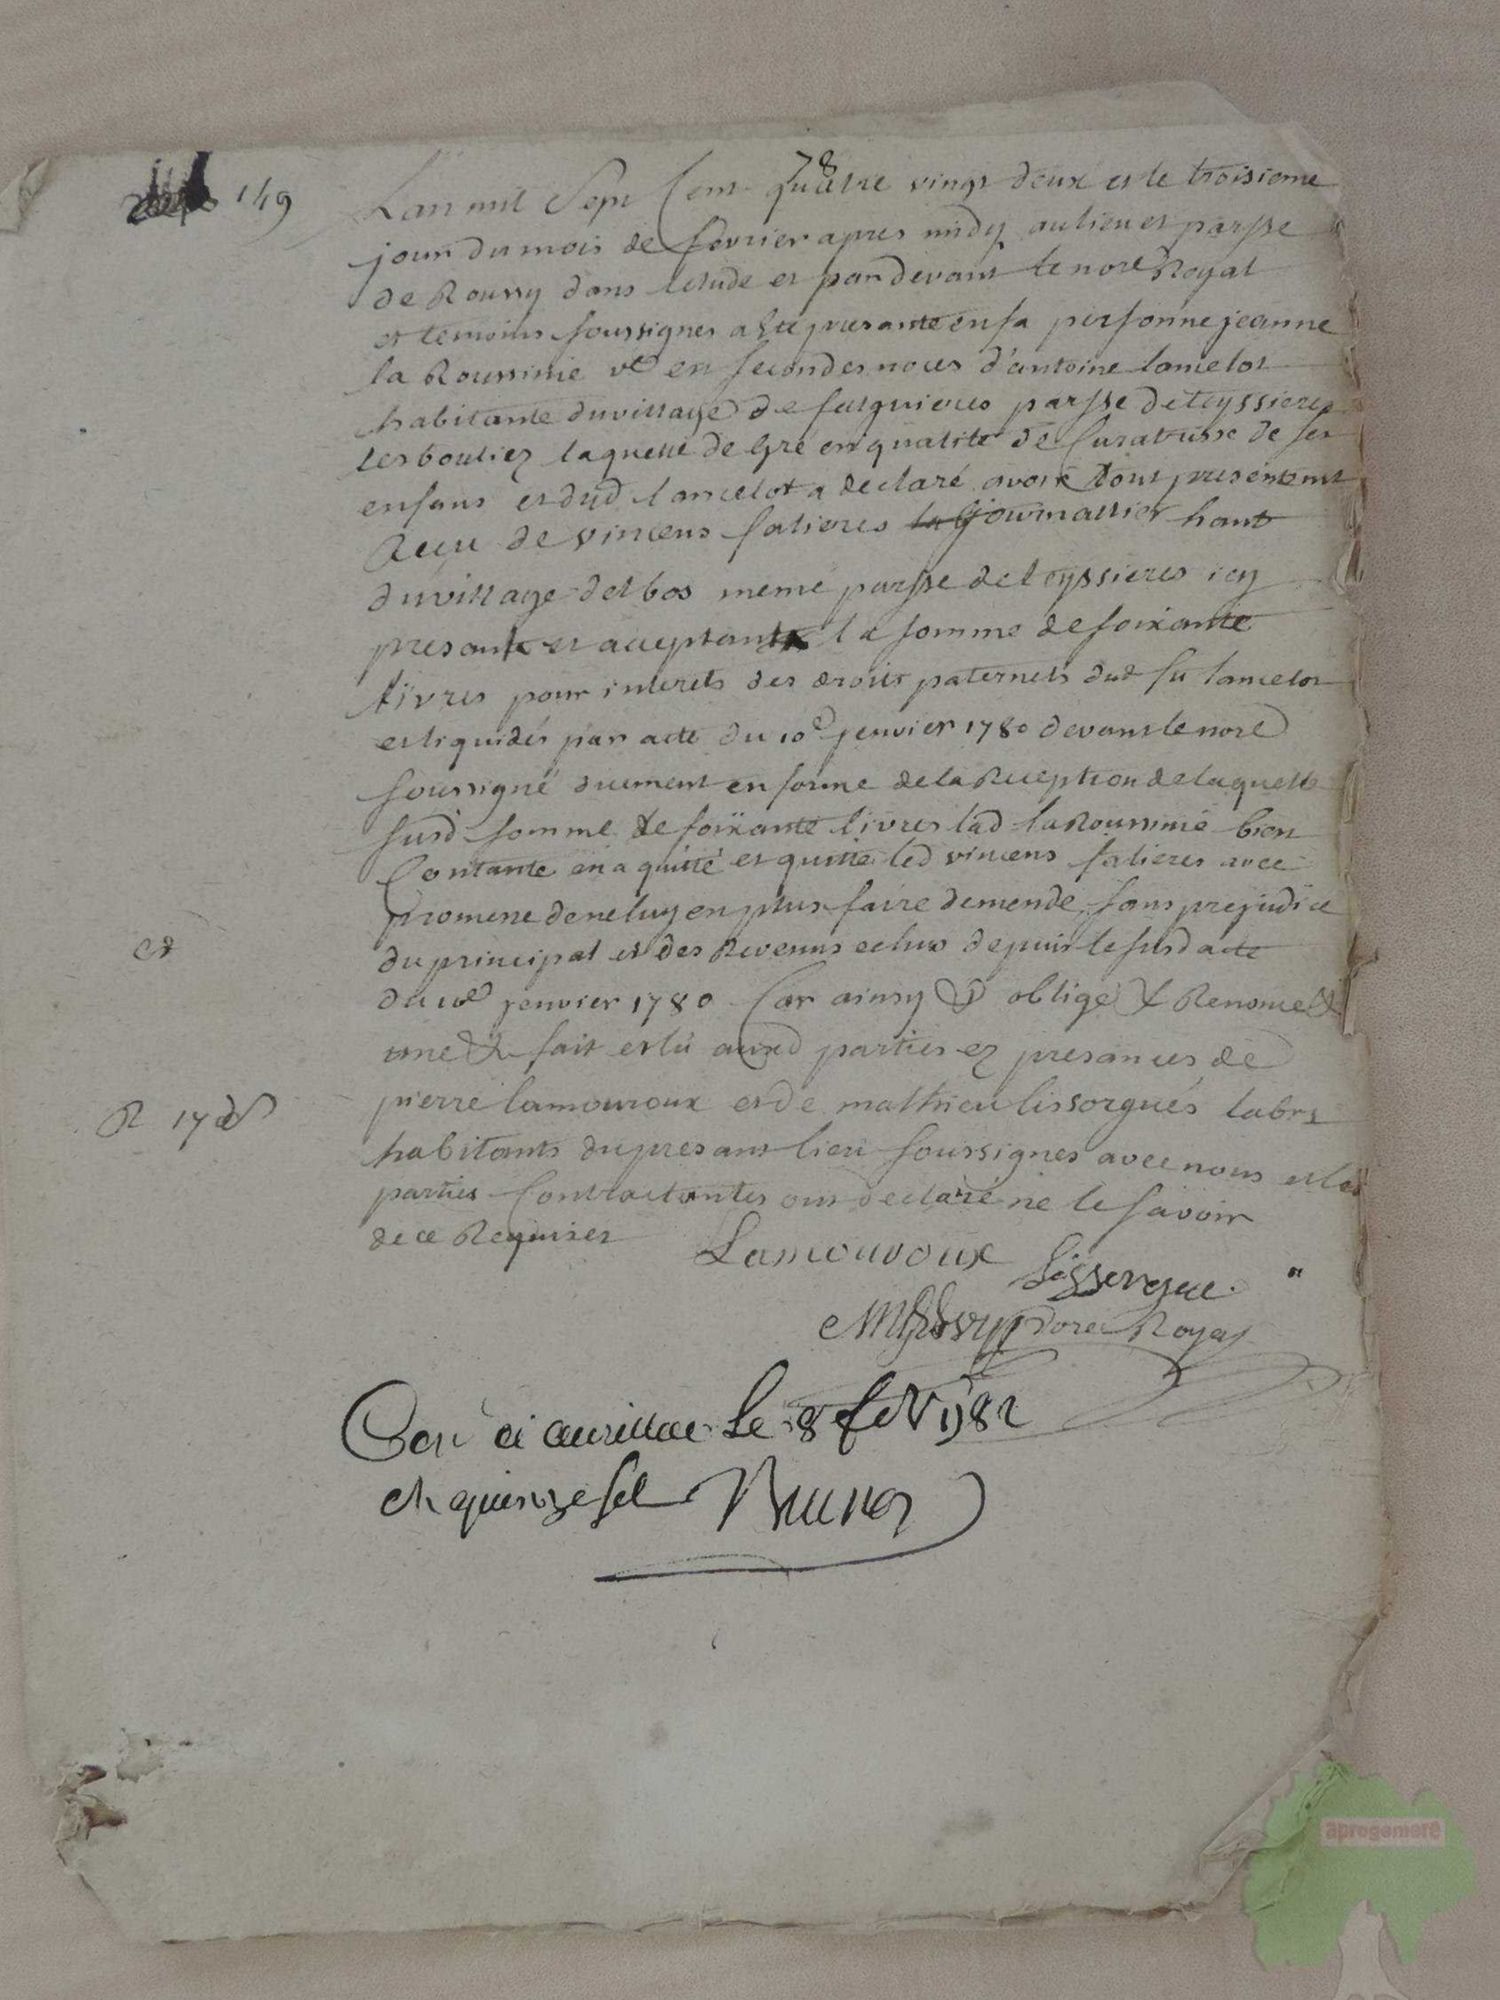 78
1/19
Lan mil Sept Cent quatre vingt deux et le troisieme
jour du mois de fevrier apres midy au lieu et parsse
de Roussy dans letude et pardevant le nore Royal
et temoins soussignes a ete presante en sa personne jeanne
la Roussinie ve en secondes noces d'antoine lamelot
habitante du village de falguieres parsse de teyssieres
les bouliez laquelle de gré en qualité de Curatrisse de ses
enfans et dud lancelot a declaré avoir tout presentemt
Recu de vincens falieres journallier hant
du village delbos meme parsse de teyssieres icy
presant et acceptant la somme de soixante
livres pour interets des droits paternels dud fu lancelot
et liquidés par acte du 10e jenvier 1780 devant le nore
soussigné duement en forme de la Reception de laquelle
susd somme de soixante livres lad laRoussinie bien
Contante en a quitté et quitte led vincens falieres avec
promesse de ne luy en plus faire demende, sans prejudice
du principal et des Revenus echus depuis le susd acte
et
du 10e jenvier 1780 Car ainsy oblige & Renonce &
une & fait et lu auxd parties ez presances de
R 17 d
pierre lamouroux et de mathieu lissorgués labrs
habitants du presant lieu soussignes avec nous et les
parties Contractantes ont declaré ne le savoir
de ce Requises
Lamouroux
Lissorgue
nore Royal
Con a aurillac Le 8 fev 1782
Ar quinze sol Brunon
aprogemere